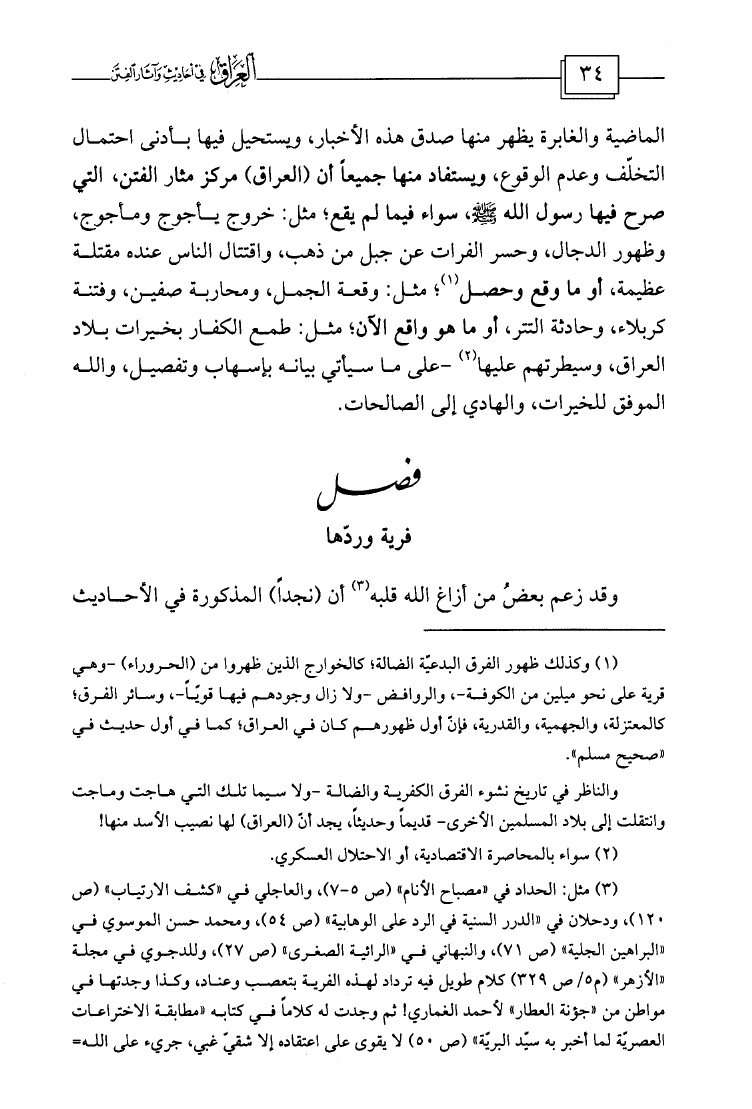 ٣٤
العراق في أحاديث وآثار الفتن
الماضية والغابرة يظهر منها صدق هذه الأخبار، ويستحيل فيها بأدنى احتمال
التخلّف وعدم الوقوع، ويستفاد منها جميعاً أن (العراق) مركز مثار الفتن، التي
صرح فيها رسول الله ﷺ، سواء فيما لم يقع؛ مثل: خروج يأجوج ومأجوج،
وظهور الدجال، وحسر الفرات عن جبل من ذهب، واقتتال الناس عنده مقتلة
عظيمة، أو ما وقع وحصل(١)؛ مثل: وقعة الجمل، ومحاربة صفين، وفتنة
كربلاء، وحادثة التتر، أو ما هو واقع الآن؛ مثل: طمع الكفار بخيرات بلاد
العراق، وسيطرتهم عليها(٢) -على ما سيأتي بيانه بإسهاب وتفصيل، والله
الموفق للخيرات، والهادي إلى الصالحات.
فصل
فرية وردّها
وقد زعم بعضُ من أزاغ الله قلبه(٣) أن (نجداً) المذكورة في الأحاديث
(١) وكذلك ظهور الفرق البدعيّة الضالة؛ كالخوارج الذين ظهروا من (الحروراء) -وهي
قرية على نحو ميلين من الكوفة-، والروافض -ولا زال وجودهم فيها قويّاً-، وسائر الفرق؛
كالمعتزلة، والجهمية، والقدرية، فإنّ أول ظهورهم كان في العراق؛ كما في أول حديث في
«صحيح مسلم».
والناظر في تاريخ نشوء الفرق الكفرية والضالة -ولا سيما تلك التي هاجت وماجت
وانتقلت إلى بلاد المسلمين الأخرى- قديماً وحديثاً، يجد أنّ (العراق) لها نصيب الأسد منها!
(٢) سواء بالمحاصرة الاقتصادية، أو الاحتلال العسكري.
(٣) مثل: الحداد في «مصباح الأنام» (ص ٥-٧)، والعاجلي في «كشف الارتياب» (ص
١٢٠)، ودحلان في «الدرر السنية في الرد على الوهابية» (ص ٥٤)، ومحمد حسن الموسوي في
«البراهين الجلية» (ص ٧١)، والنبهاني في «الرائية الصغرى» (ص ٢٧)، وللدجوي في مجلة
«الأزهر» (م٥/ ص ٣٢٩) كلام طويل فيه ترداد لهذه الفرية بتعصب وعناد، وكذا وجدتها في
مواطن من «جؤنة العطار» لأحمد الغماري! ثم وجدت له كلاماً في كتابه «مطابقة الاختراعات
العصريّة لما أخبر به سيّد البريّة» (ص ٥٠) لا يقوى على اعتقاده إلا شقيّ غبي، جريء على الله=